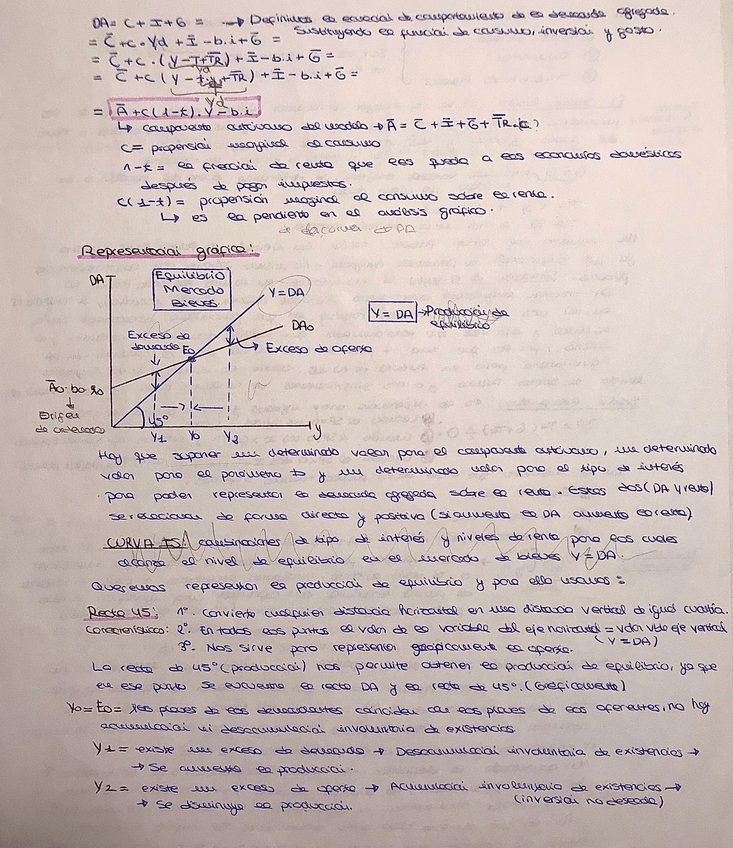 DA = C + I + G = → Definimos la ecuación de comportamiento de la demanda agregada.
Sustituyendo la función de consumo, inversión y gasto.
= C̄ + c · Yd + Ī - b.i + Ḡ =
= C̄ + c · (Y - T + T̄R̄) + Ī - b.i + Ḡ =
Yd
= C̄ + c (Y - t.y + T̄R̄) + Ī - b.i + Ḡ =
Yd
= Ā + c(1-t). Y - b.i
↳ componente autónomo del modelo → Ā = C̄ + Ī + Ḡ + T̄R̄.c
c = propensión marginal al consumo
1-t = la fracción de renta que les queda a las economías domésticas
después de pagar impuestos.
c(1-t) = propensión marginal al consumo sobre la renta.
↳ es la pendiente en el análisis gráfico.
de la curva de DA
Representación gráfica:
DA
Equilibrio
Mercado
Bienes
Y = DA
Y = DA → Producción de
equilibrio
DA₀
Exceso de
demanda E₀
Exceso de oferta
Ā₀-b₀.i₀
Origen
de ordenadas
45º
Y1 Y₀ Y2 y
Hay que suponer un determinado valor para el componente autónomo, un determinado
valor para el parámetro b y un determinado valor para el tipo de interés
para poder representar la demanda agregada sobre la renta. Estas dos (DA y renta)
se relacionan de forma directa y positiva (si aumenta la DA aumenta la renta)
CURVA IS: combinaciones de tipo de interés y niveles de renta para los cuales
alcanza el nivel de equilibrio en el mercado de bienes Y = DA.
Queremos representar la producción de equilibrio y para ello usamos:
Recta 45: 1º. Convierte cualquier distancia horizontal en una distancia vertical de igual cuantía.
Características: 2º. En todos los puntos el valor de la variable del eje horizontal = valor vble eje vertical
(Y = DA)
3º. Nos sirve para representar gráficamente la oferta.
La recta de 45º (producción) nos permite obtener la producción de equilibrio, ya que
en ese punto se encuentra la recta DA y la recta de 45º. (Gráficamente)
Y₀ = E₀ = los planes de los demandantes coinciden con los planes de los oferentes, no hay
acumulación ni desacumulación involuntaria de existencias
Y1 = existe un exceso de demanda → Desacumulación involuntaria de existencias →
→ Se aumenta la producción.
Y2 = existe un exceso de oferta → Acumulación involuntaria de existencias →
(inversión no deseada)
→ Se disminuye la producción.